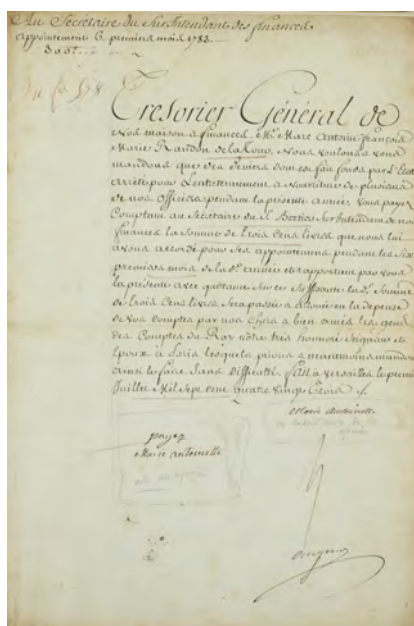 Au Secretaire du Surintendant des finances
appointemens 6. premiers mois 1783.
300#
Tresorier Général de
Nos maison & finances, Me. Marc Antoine françois
Marie Randon de la Tour, Nous voulons & vous
mandons que des deniers dont est fait fonds par L'Etat
arrêté pour L'entretenement & Nourriture de plusieurs
de nos Officiers pendant la présente année Vous payez
Comptant au Sécretaire du S. Bertier Surintendant de nos
finances la Somme de Trois Cens livres que nous lui
avons accordé pour Ses appointemens pendant les Six
premiers mois de lad. année et rapportant par vous
la presente avec quittance Sur ce Suffisante lad. Somme
de Trois Cens livres Sera passée & allouée en la depense
de vos Comptes par nos Chers & bien amés les gens
des Comptes du Roy nôtre très honnoré Seigneur &
Epoux à Paris lesquels prions & néanmoins mandons
ainsi le faire Sans Difficulté fait à versailles le premier
Juillet Mil Sept cent quatre vingt Trois
Marie Antoinette
payez
Marie Antoinette